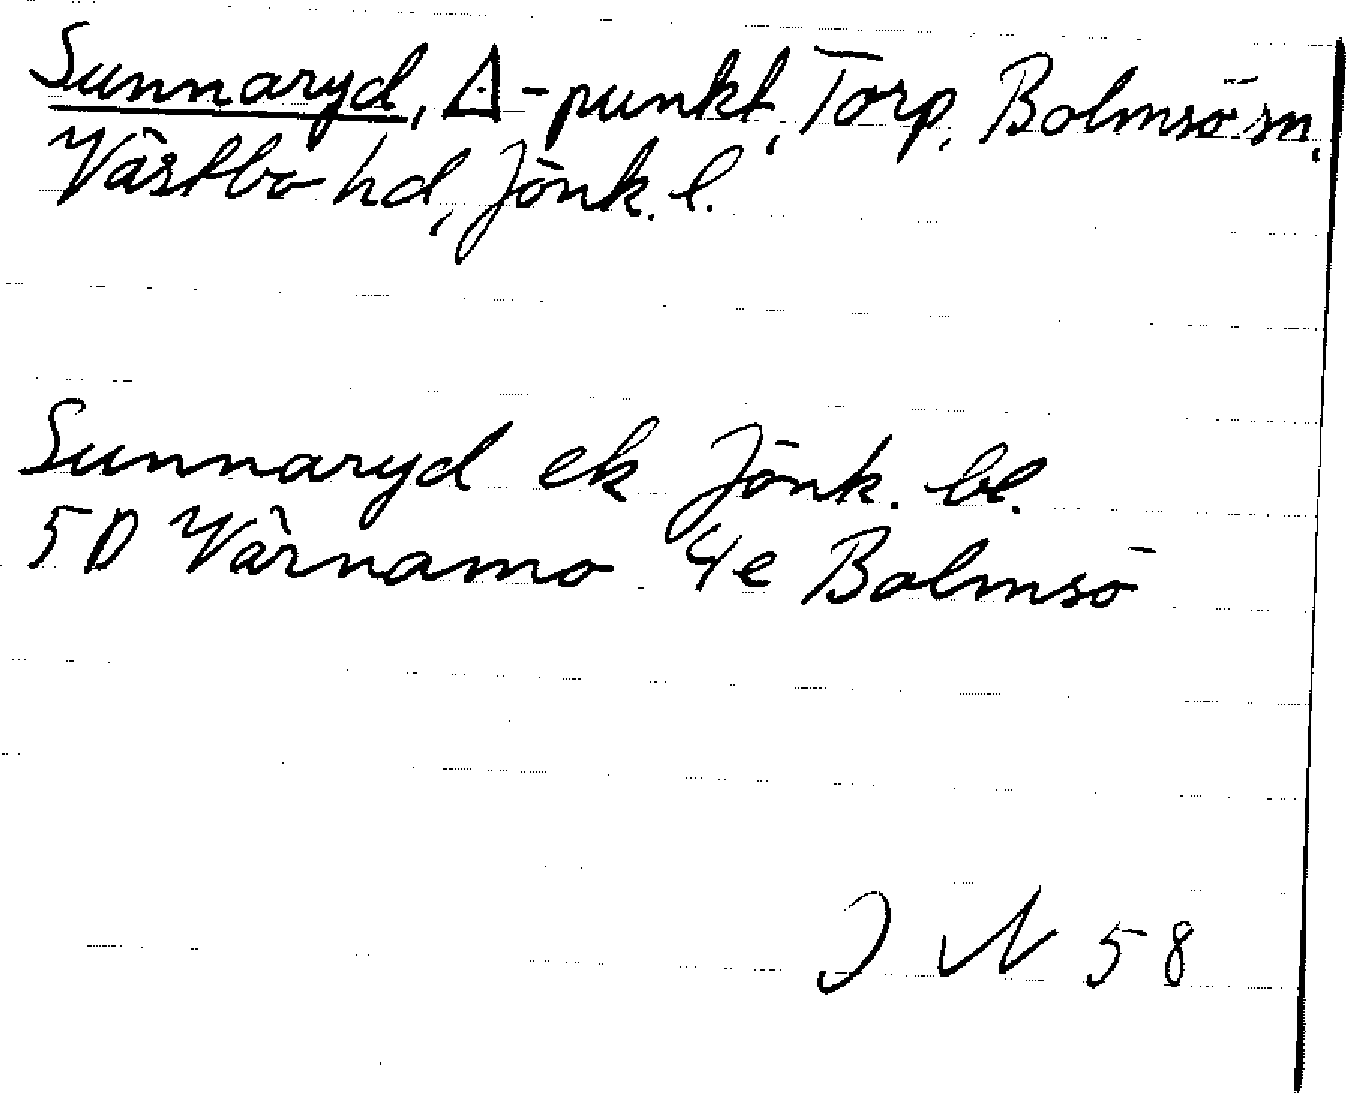 Sunnaryd, △-punkt, Torp, Bolmsö sn,
Västbo hd, Jönk. l.
Sunnaryd ek Jönk. bl.
5D Värnamo 4e Bolmsö
J N 58